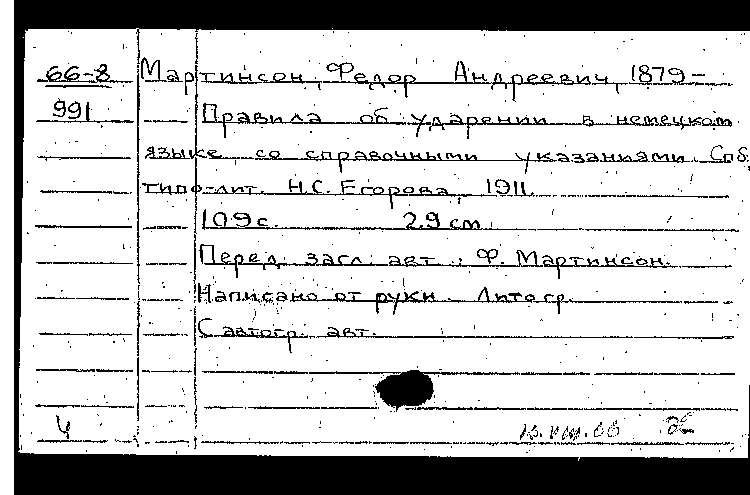 66-8 Мартинсон, Федор Андреевич, 1879-
991 Правила об ударении в немецком
языке, со справочными указаниями. Спб,
типо-лит. Н.С. Егорова, 1911.
109 с. 29 см.
Перед загл. авт.: Ф. Мартинсон.
Написано от руки. Литогр.
С автогр. авт.
4